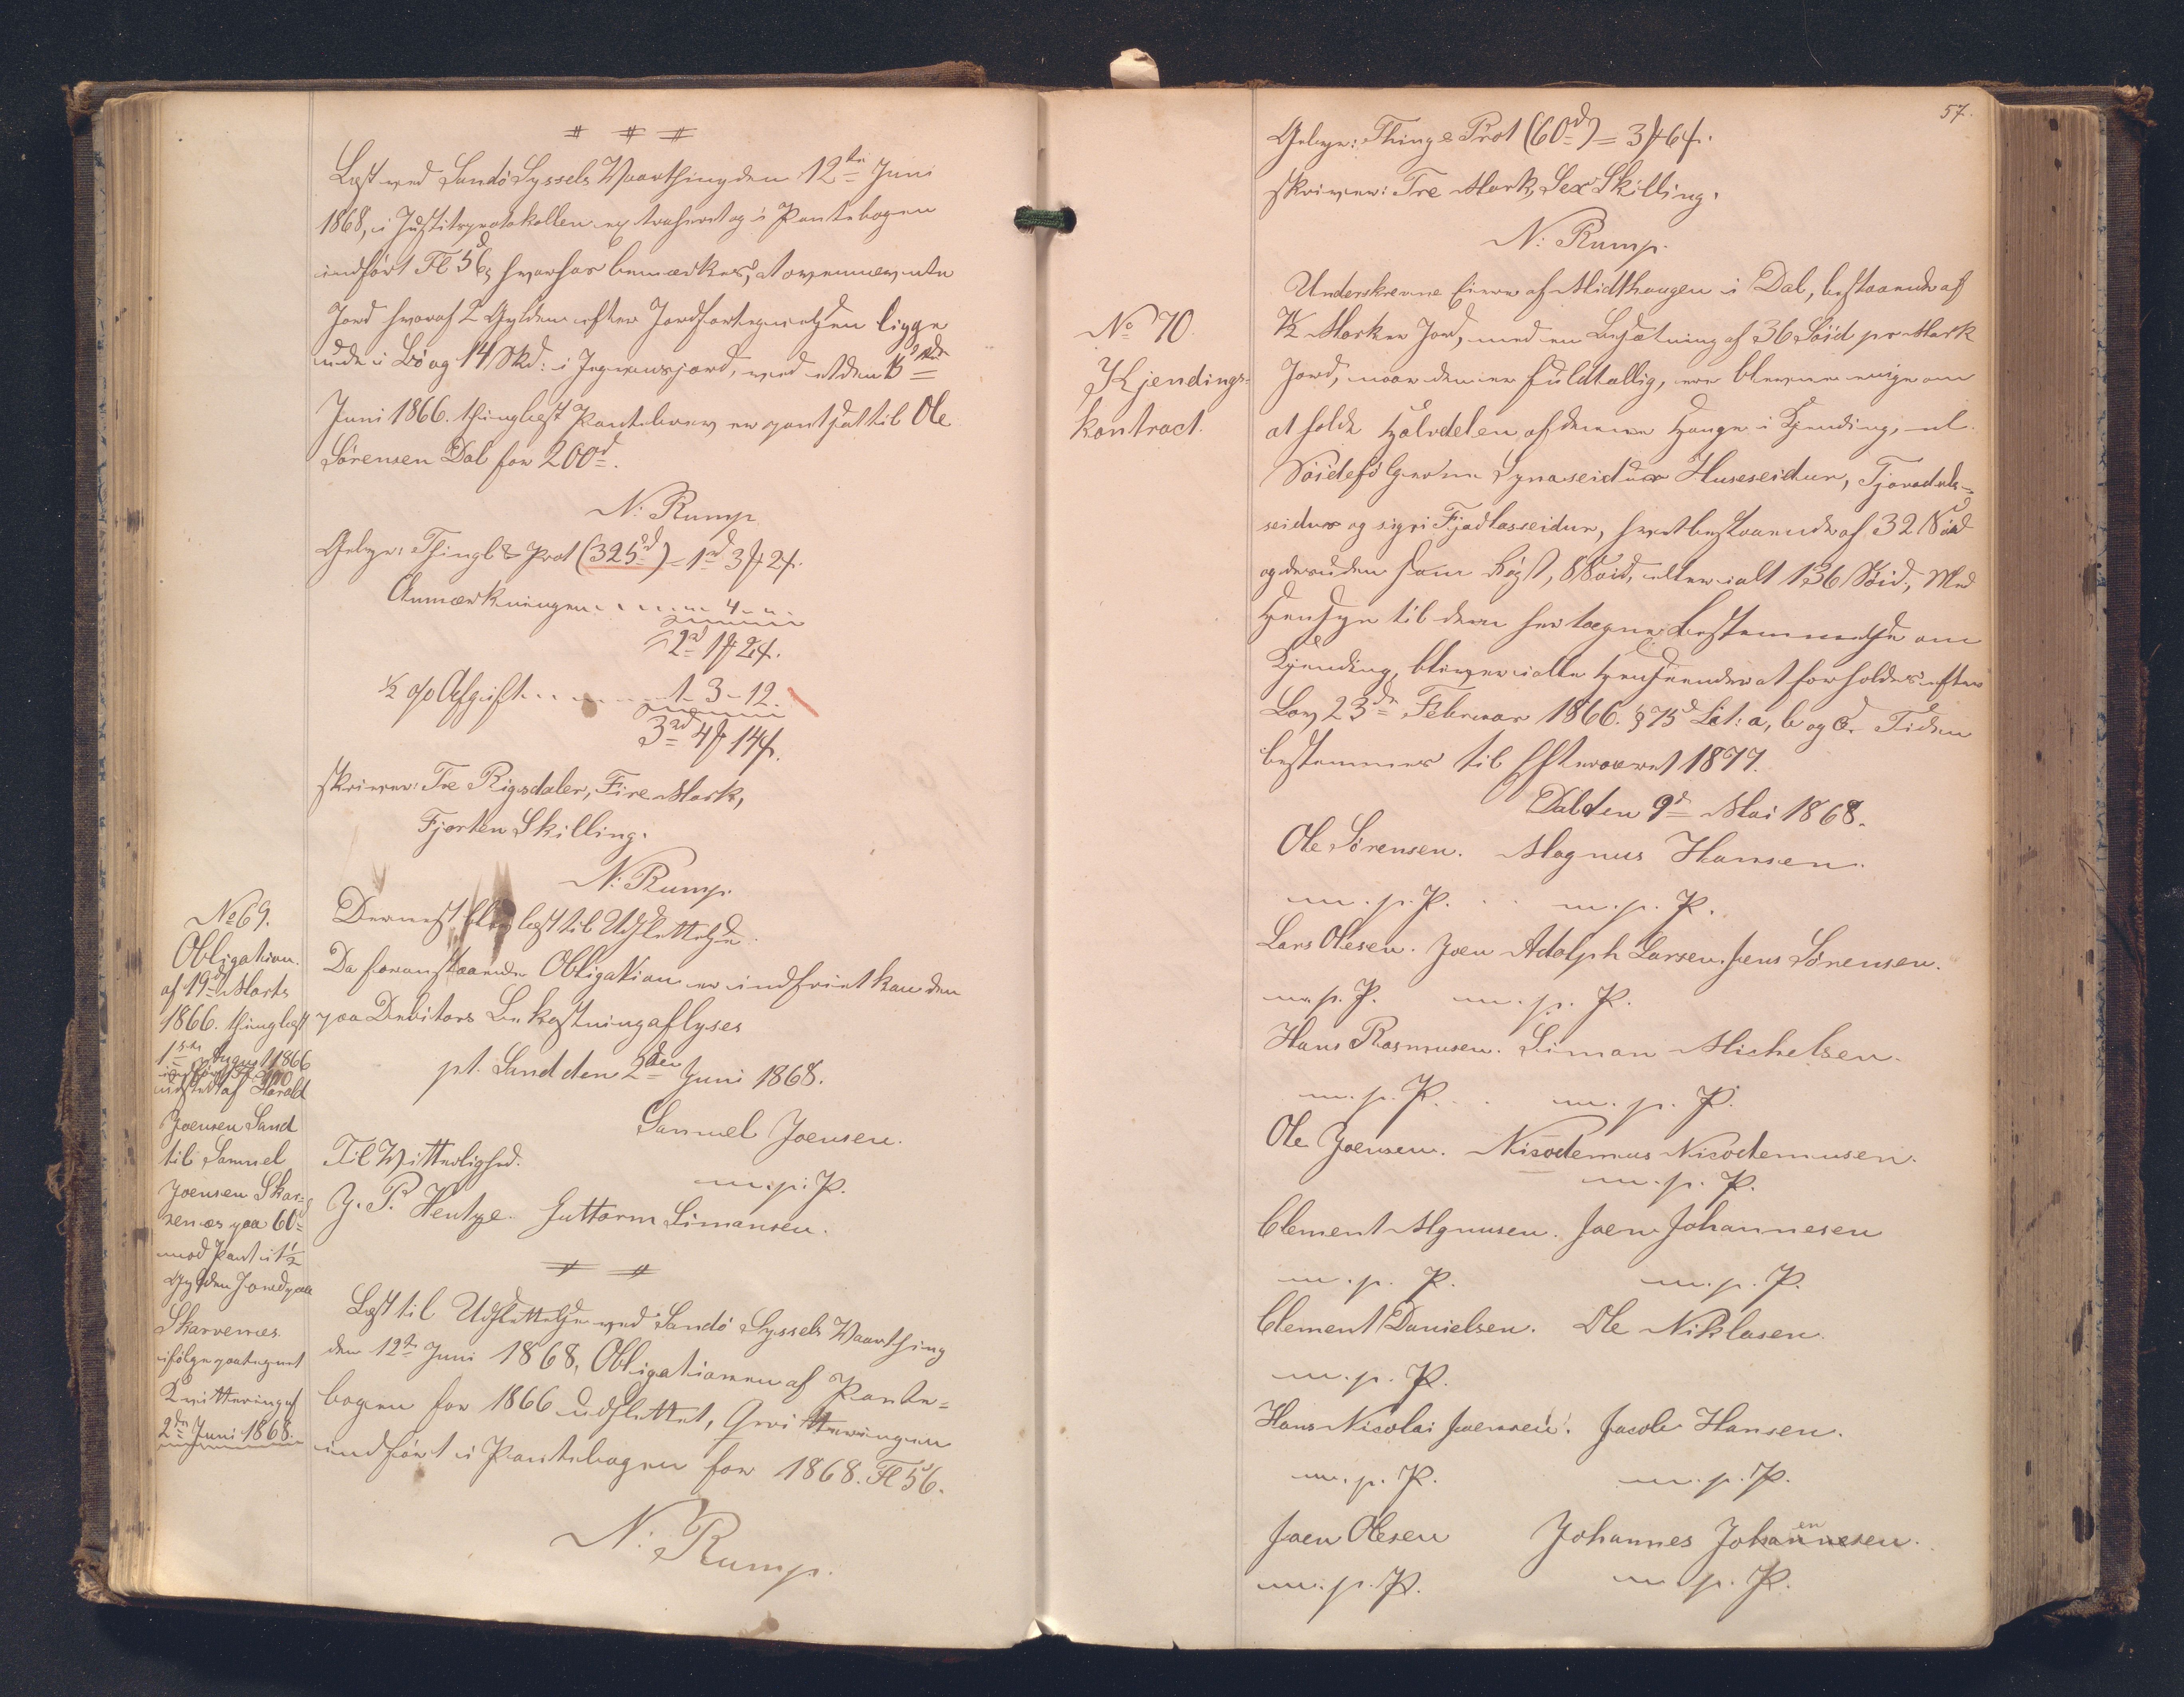 # # #
Læst ved Sandø Syssels Vaarthing den 12te Juni
1868, i Justitsprotokollen extraheret og i Pantebogen
indført Fl 56, hvorhos bemærkes, at ovennævnte
Jord hvoraf 2 Gylden efter Jordfortegnelsen ligge
inde i Bø og 14 Skd: i, ved et den 13de
Juni 1866. thinglæst Pantebrev er pantsat til Ole
Sørensen Dal for 200d.
N: Rump
Gebyr: Thingl & Prot (325d) = 1rd 3 ℔ 2 ß.
Anmærkningen . . . . . . 4 " "
2rd 1 ℔ 2 ß.
½ % Afgift . . . . . 1. 3 - 12.
3rd 4 ℔ 14 ß.
skriver: Tre Rigsdaler, Fire Mark,
Fjorten Skilling.
N: Rump.
No 69.
Obligation
af 19d Marts
1866. thinglæst
1ste August 1866
udstedt af Harald
Joensen Sand
til Samuel
Joensen Skar-
venæs paa 60d
mod Pant i 1½
Gylden Jord paa
Skarvenæs
ifølge paategnet
Kvittering af
2den Juni 1868.
Dernæst blev læst til Udslettelse.
Da foranstaaende Obligation er indfriet kan den
paa Debitors Bekostning aflyses
pt. Sand den 2den Juni 1868.
Samuel Joensen.
Til Vitterlighed. m. p. P.
J. P. Hentze. Guttorm Simonsen.
# #
Læst til Udslettelse ved Sandø Syssels Vaarthing
den 12te Juni 1868, Obligationen af Pante-
bogen for 1866 udslettet, Qvitteringen
indført i Pantebogen for 1868. Fl 56.
N. Rump.
57.
Gebyr: Thingl & Prot (60d) = 3 ℔ 6 ß.
skriver: Tre Mark, Sex Skilling.
N: Rump.
No 70.
Kjendings-
kontract.
Underskrevne Eiere af Midthaugen i Dal, bestaaende af
7½ Marker Jord, med en Besætning af 36 Søid pr Mark
Jord, naar den er fuldtallig, ere blevne enige om
at holde Halvdelen af denne Hauge i Kjending, nl.
Søidefølgerne Synaseidur Huseseidur,
seidur og Fjadlasseidur, hvert bestaaende af 32 Søid
og desuden som bøgst, 8 Søid, eller ialt 136 Søid; Med
Hensyn til den her tagne Bestemmelse om
Kjending, bliver i alle Henseender at forholdes efter
Lov 23de Februar 1866. § 15d Lit: a, b og c. Tiden
bestemmes til Efteraaret 1877.
Dal den 9d Mai 1868.
Ole Sørensen. Magnus Hansen.
m. p. P. . . m. p. P.
Lars Olesen. Joen Adolph Larsen. Jens Sørensen.
m. p. P. m. p. P.
Hans Rasmusen. Simon Michelsen.
m. p. P. . . m. p. P.
Ole Joensen. Nicodemus Nicodemusen.
m. p. P.
Clement Mgnusen. Joen Johannesen
m. p. P. m. p. P.
Clement Danielsen. Ole Niklasen.
m. p. P.
Hans Nicolai Joensen. Jacob Hansen.
m. p. P. m. p. P.
Joen Olesen Johannes Johannesen.
m. p. P. m. p. P.